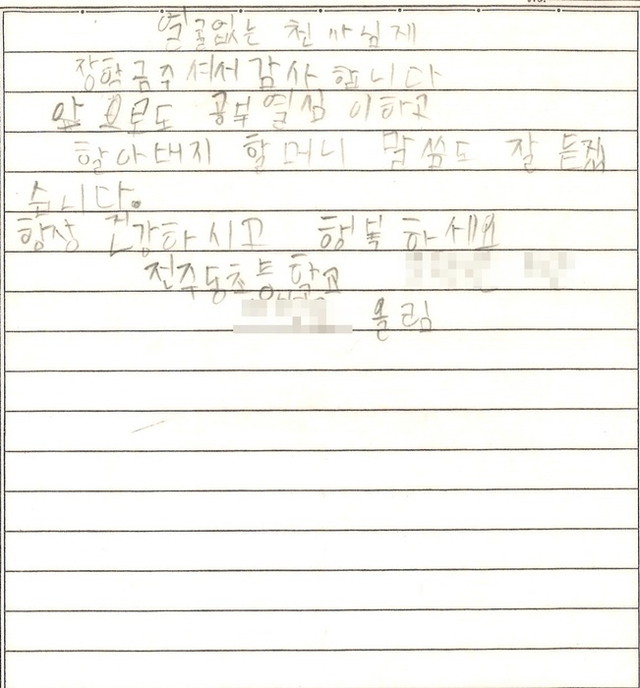 얼굴없는 천사님께
장학금주셔서 감사합니다
앞으로도 공부열심이하고
할아버지 할머니 말씀도 잘 듣겠
습니다.
항상 건강하시고 행복하세요
전주동초등학교
올림